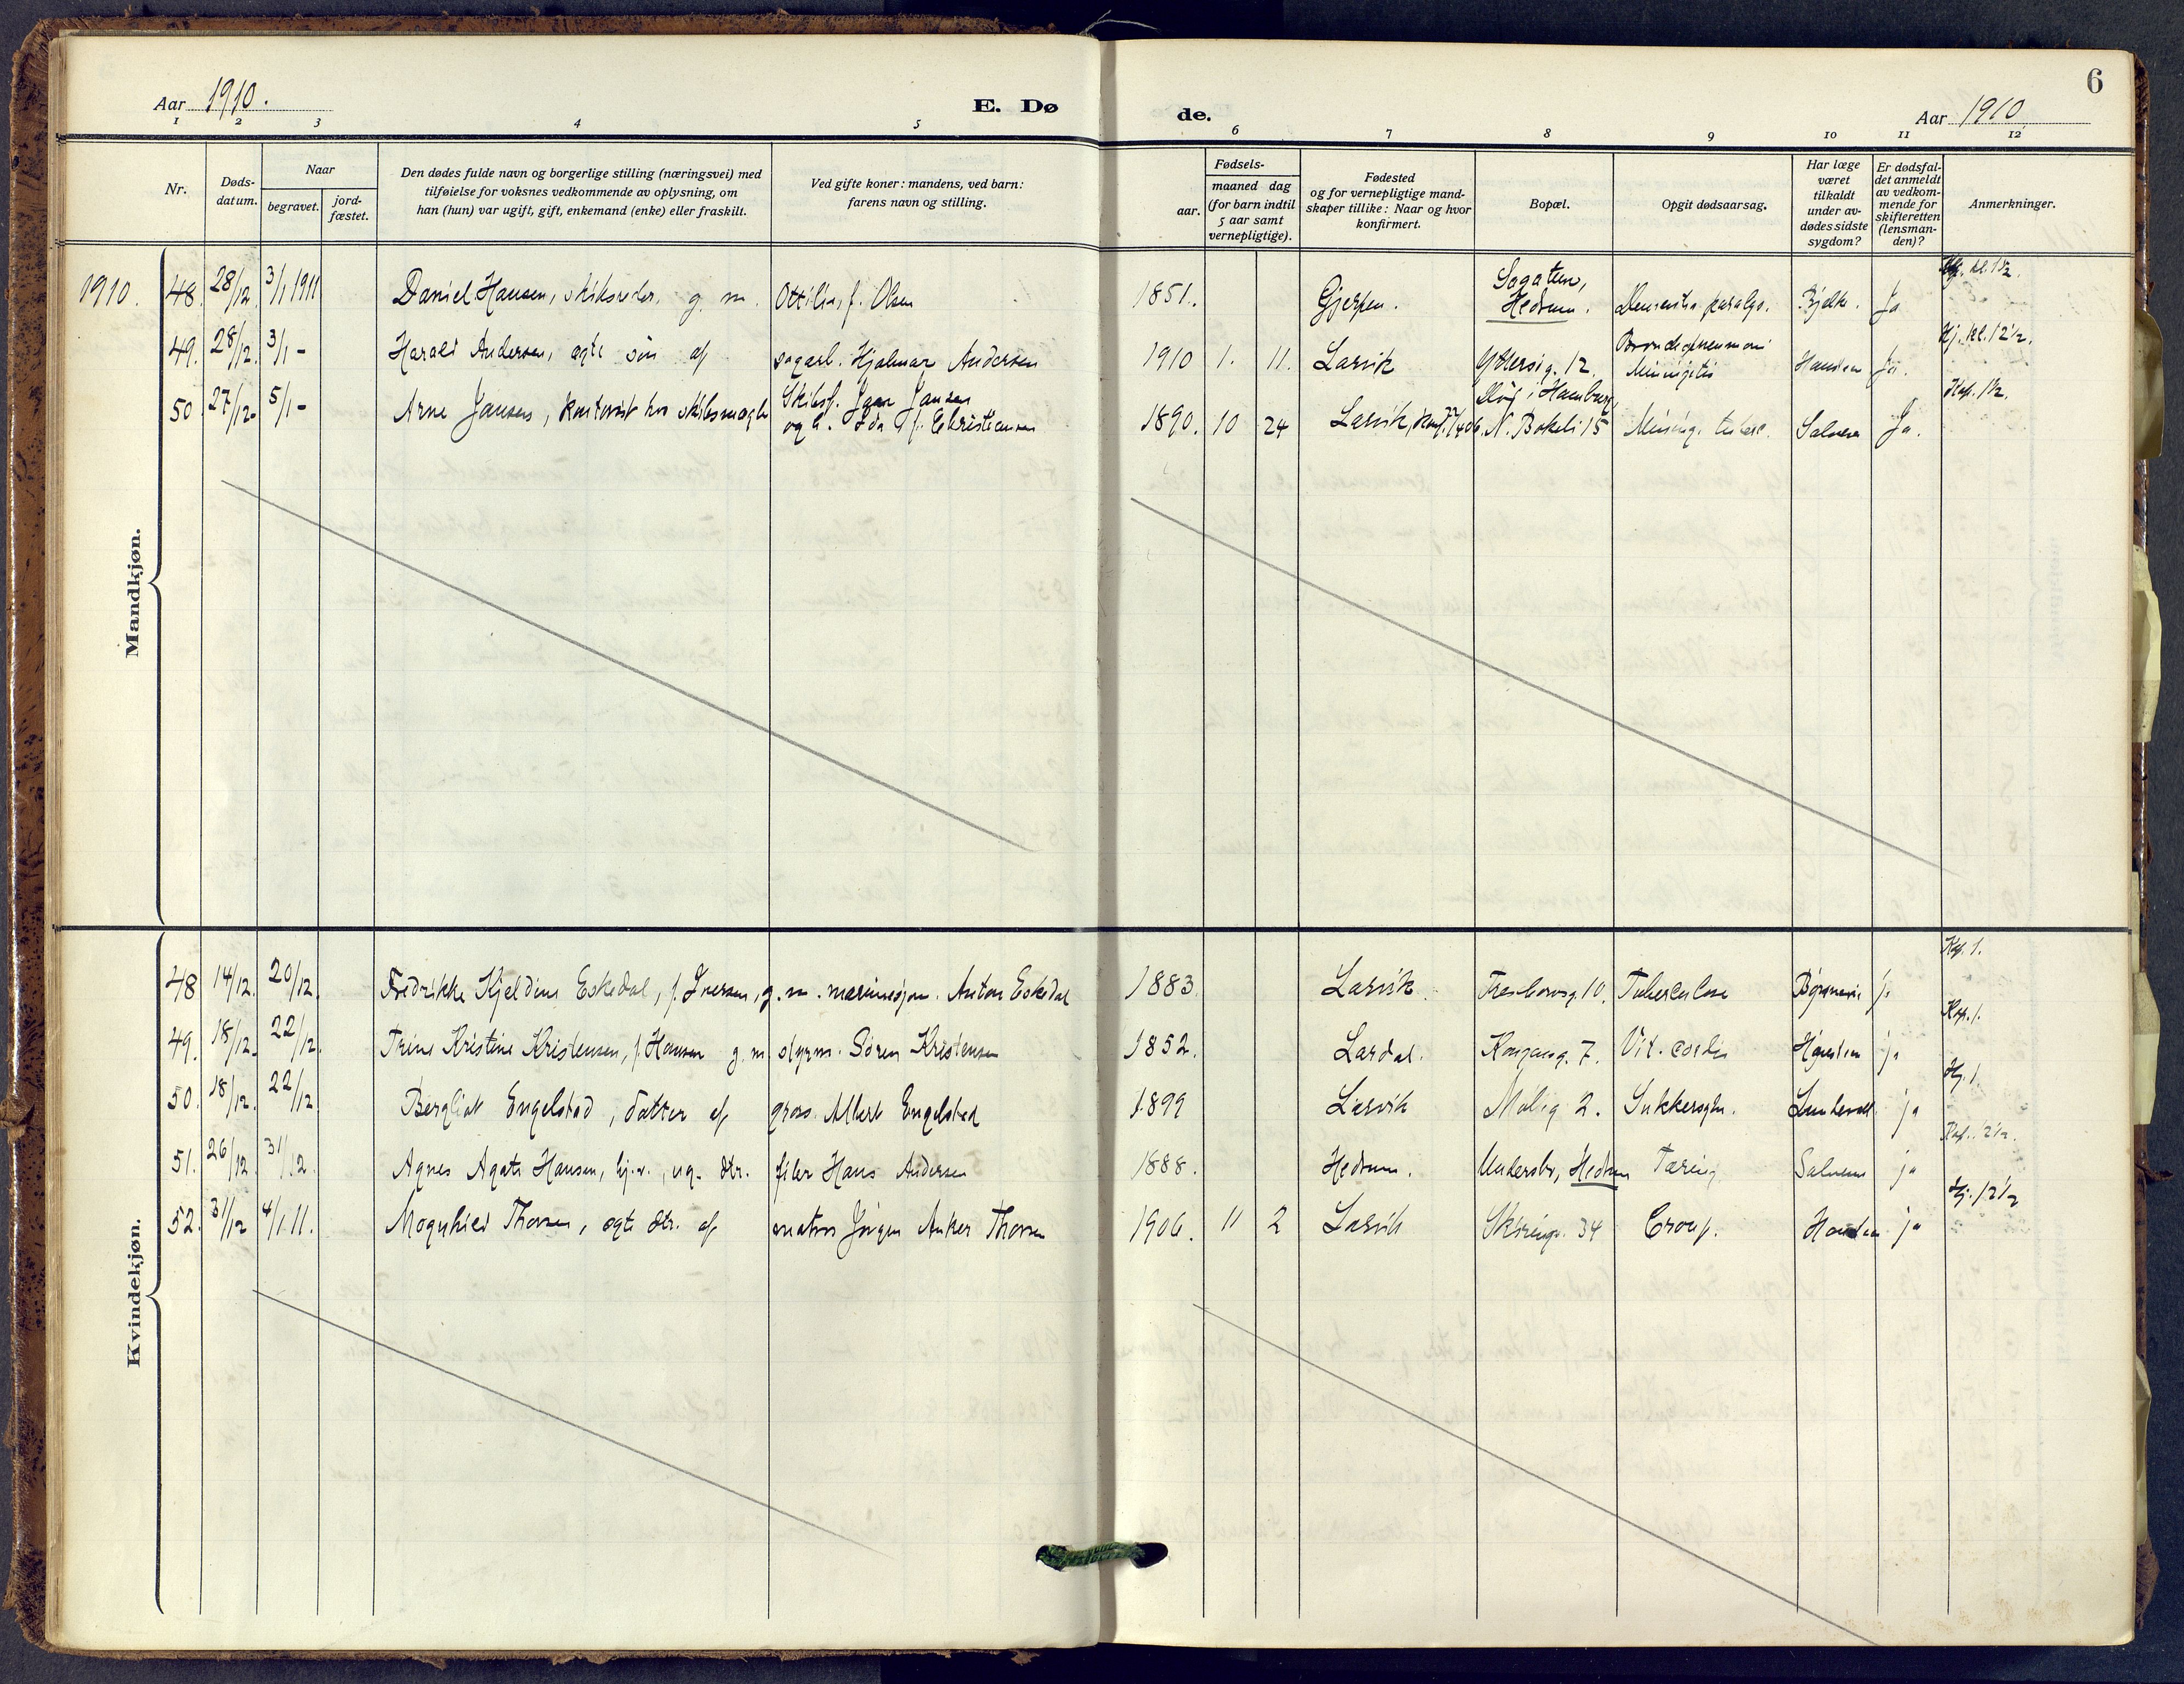 6
Aar 1910.
E. Dø
de.
Aar 1910
1 2 3 4 5 6 7 8 9 10 11 12
Nr.
Døds-
datum.
Naar
begravet.
jord-
fæstet.
Den dødes fulde navn og borgerlige stilling (næringsvei) med
tilføielse for voksnes vedkommende av oplysning, om
han (hun) var ugift, gift, enkemand (enke) eller fraskilt.
Ved gifte koner: mandens, ved barn:
farens navn og stilling.
Fødsels-
aar.
maaned dag
(for barn indtil
5 aar samt
vernepligtige).
Fødested
og for vernepligtige mand-
skaper tillike: Naar og hvor
konfirmert.
Bopæl.
Opgit dødsaarsag.
Har læge
været
tilkaldt
under av-
dødes sidste
sygdom?
Er dødsfal-
det anmeldt
av vedkom-
mende for
skifteretten
(lensman-
den)?
Anmerkninger.
Mandkjøn.
1910. 48. 28/12. 3/1 1911 Daniel Hansen, skibsreder, g. m. Ottilia, f. Olsen 1851. Gjerpen. Hedrum. Dementia paralyt. Bjelke. Ja
49. 28/12. 3/1 - Harald Andersen, ægte søn af sagarb. Hjalmar Andersen 1910 1. 11. Larvik Yttersøg. 12. Meningitis Hansten Ja. Kj. kl. 12½.
50 27/12- 5/1 - Arne Jansen, kontorist hos skibsmægler Skibsf. Jansen
og h. Ida f. Christiansen 1890. 10 24 Larvik, N. Bøkeli 15 Mening. tuberc. Salvesen Ja. Kap. 1½.
Kvindekjøn.
48 14/12. 20/12. Fredrikke Kjeldine Eskedal, f. Iversen, g. m. Anton Eskedal 1883. Larvik. 10. Tuberculose ja Kap. 1.
49. 18/12. 22/12. Trine Kristine Kristensen, f. Hansen g. m. styrm. Sören Kristensen 1852. Lardal. Kongeg. 7. Vit. cordis Hansten ja Kap. 1.
50. 18/12. 22/12. Bergliot Engelstad, datter af gross. Albert Engelstad 1899 Larvik 2. Sukkersyke. ja Kj. 1.
51. 26/12 31/12. Agnes Agate Hansen, hj.v., ug. dtr. filer Hans Andersen 1888. Hedrum. Undersbo, Hedrum Tæring Salvesen ja Kap. 12½.
52. 31/12 4/1.11. Magnhild Thorsen, ægte dtr. af matros Jörgen Anker Thorsen 1906. 11 2 Larvik Skiringv. 34 Croup. Hansten ja Kj. 12½